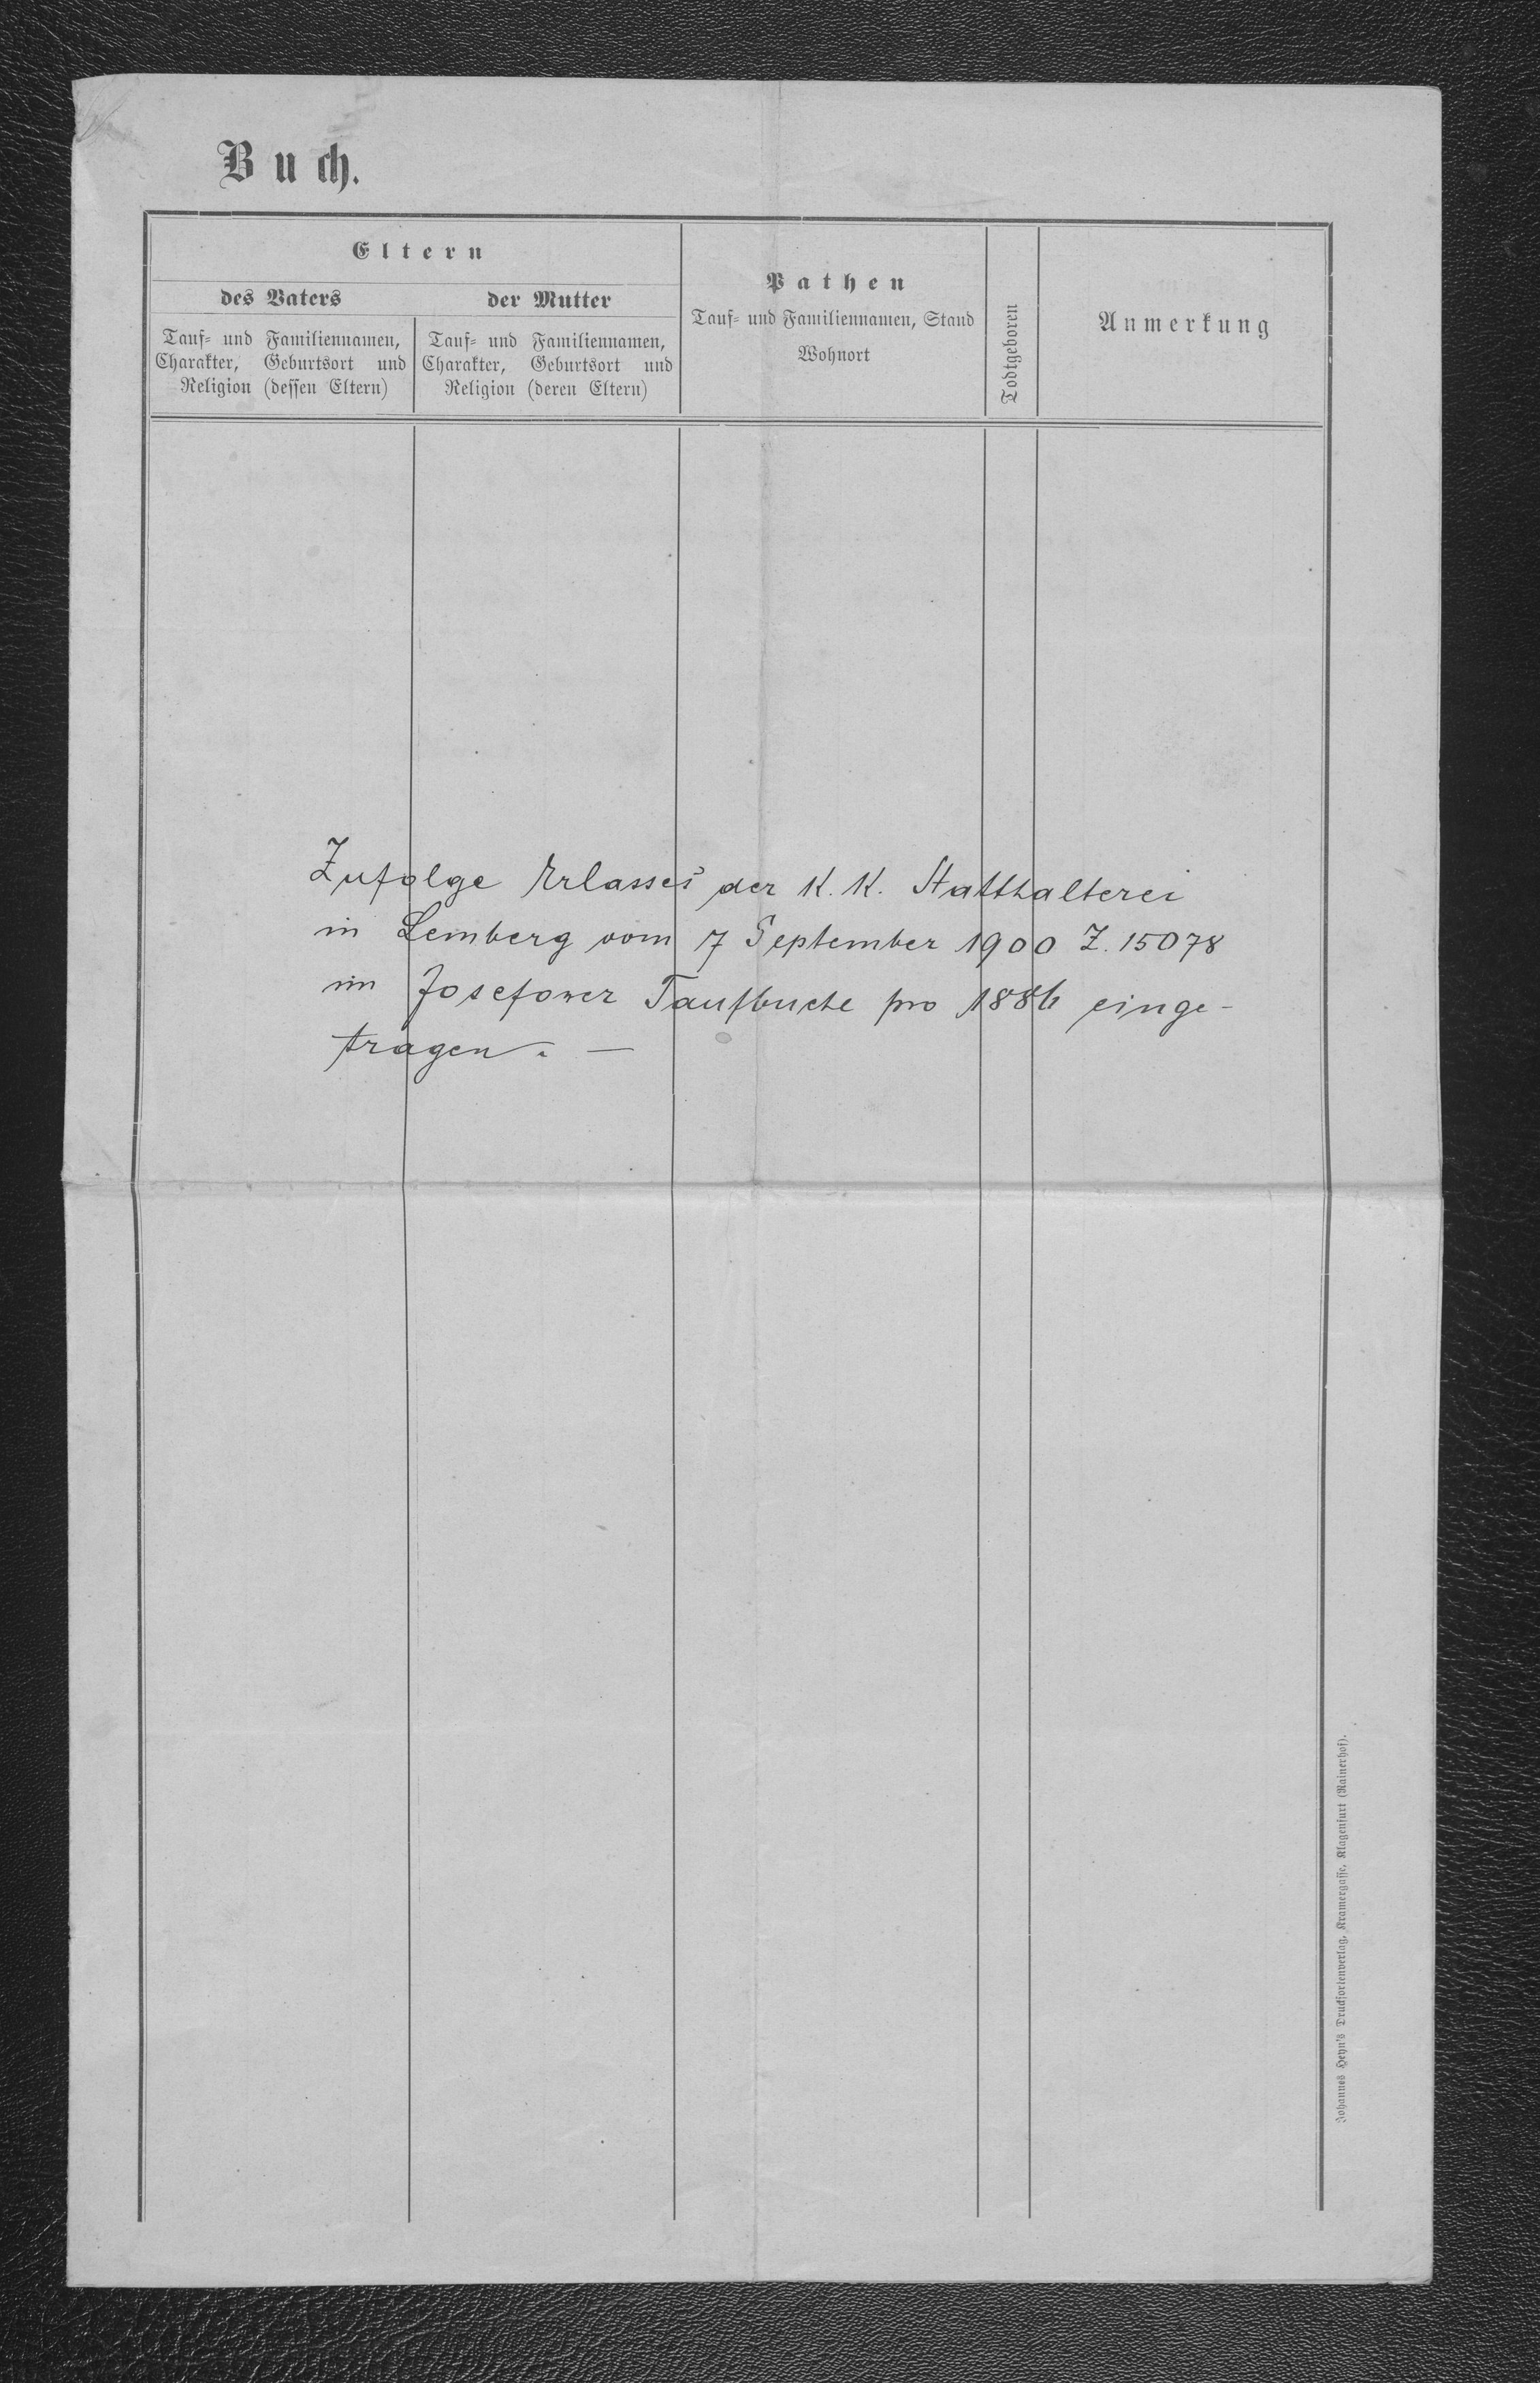 Buch.
Eltern
des Vaters
der Mutter
Tauf- und Familiennamen,
Charakter, Geburtsort und
Religion (dessen Eltern)
Tauf- und Familiennamen,
Charakter, Geburtsort und
Religion (deren Eltern)
Pathen
Tauf- und Familiennamen, Stand
Wohnort
Todtgeboren
Anmerkung
Zufolge Erlasses der K. K. Statthalterei
in Lemberg vom 7 September 1900 Z. 15078
im Josefower Taufbuche pro 1886 einge-
tragen. —
Johannes Heyn's Drucksortenverlag, Kramergasse, Klagenfurt (Rainerhof).